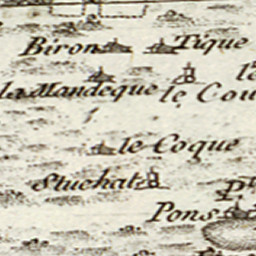 Biron Tique
la Mandeque le Cou
le Coque
Stuehat
Pt
Pons